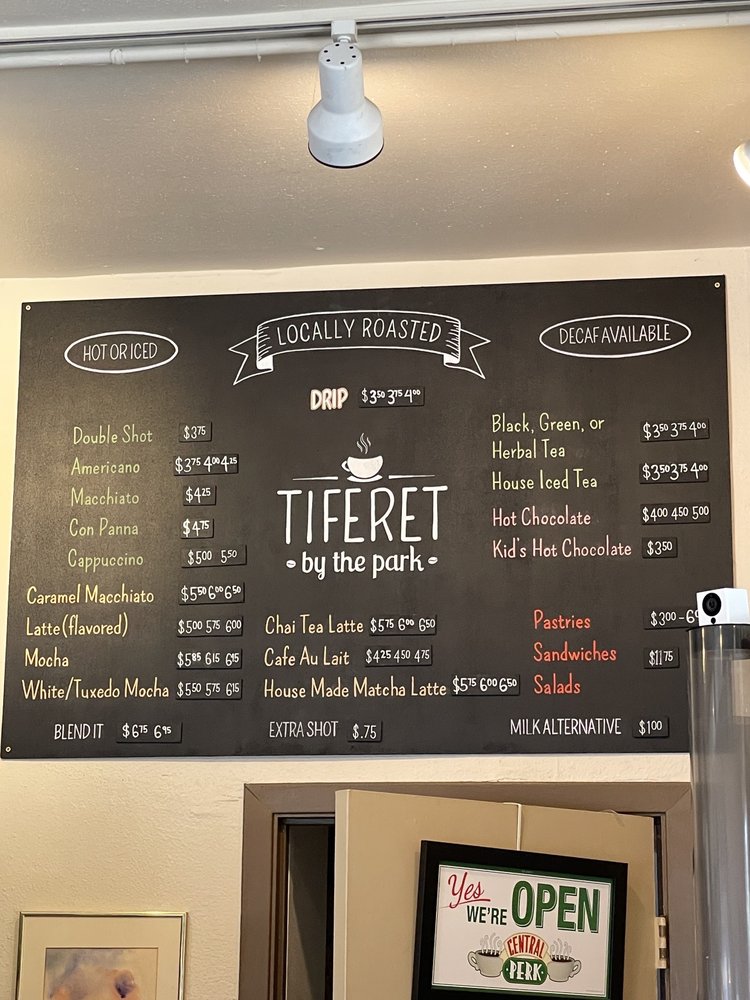 LOCALLY ROASTED
HOT OR ICED
DECAF AVAILABLE
DRIP $3.50 3.75 4.00
Double Shot $3.75
Americano $3.75 4.00 4.25
Macchiato $4.25
Con Panna $4.75
Cappuccino $5.00 5.50
Caramel Macchiato $5.50 6.00 6.50
Latte (flavored) $5.00 5.75 6.00
Mocha $5.85 6.15 6.95
White/Tuxedo Mocha $5.50 5.75 6.15
BLEND IT $6.75 6.95
TIFERET
by the park
Chai Tea Latte $5.75 6.00 6.50
Cafe Au Lait $4.25 4.50 4.75
House Made Matcha Latte $5.75 6.00 6.50
EXTRA SHOT $.75
Black, Green, or
Herbal Tea $3.50 3.75 4.00
House Iced Tea $3.50 3.75 4.00
Hot Chocolate $4.00 4.50 5.00
Kid's Hot Chocolate $3.50
Pastries $3.00-
Sandwiches $11.75
Salads
MILK ALTERNATIVE $1.00
Yes
WE'RE OPEN
CENTRAL
PERK